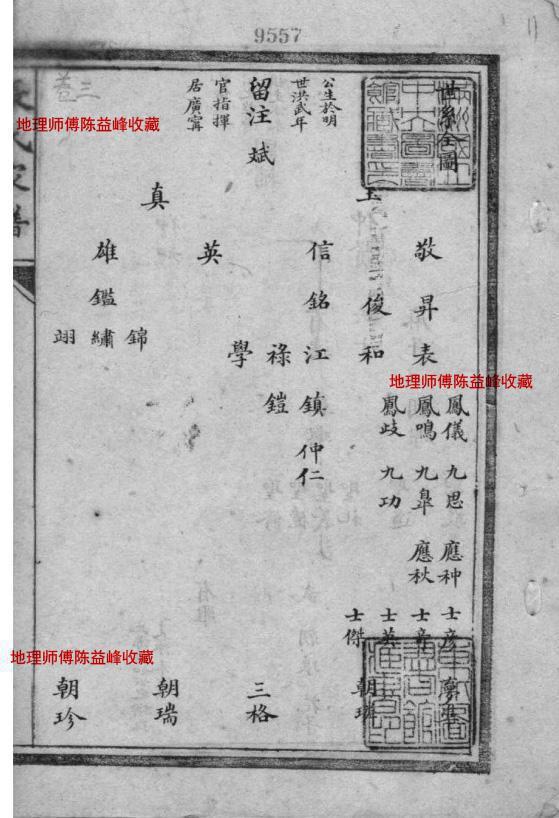 9557
11
世系全圖
公生於明
世洪武年
留注 斌
官指揮
居廣甯
真
敬 信 英 雄
昇 俊 銘 鑑
表 和 江 祿 學 錦 繡 翊
鳳儀 鳳鳴 鳳歧 鎮 鎧
九思 九臯 九功 仲仁
應种 應秋
士彥 士章 士英 士傑
三格 朝瑞 朝珍
卷三
家譜
地理师傅陈益峰收藏
地理师傅陈益峰收藏
地理师傅陈益峰收藏